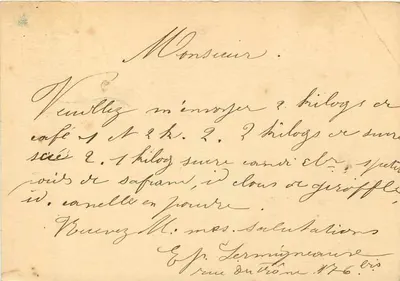 Monsieur.
Veuillez m'envoyer 2 kilogs de
café 1 et 2 k. 2. 2 kilogs de sucre
scié 2. 1 kilog sucre candi clr. 1 petit
poids de safran, id clous de giroffle
id. canelle en poudre.
Recevez M. mes salutations
rue du Trône N 76 bis